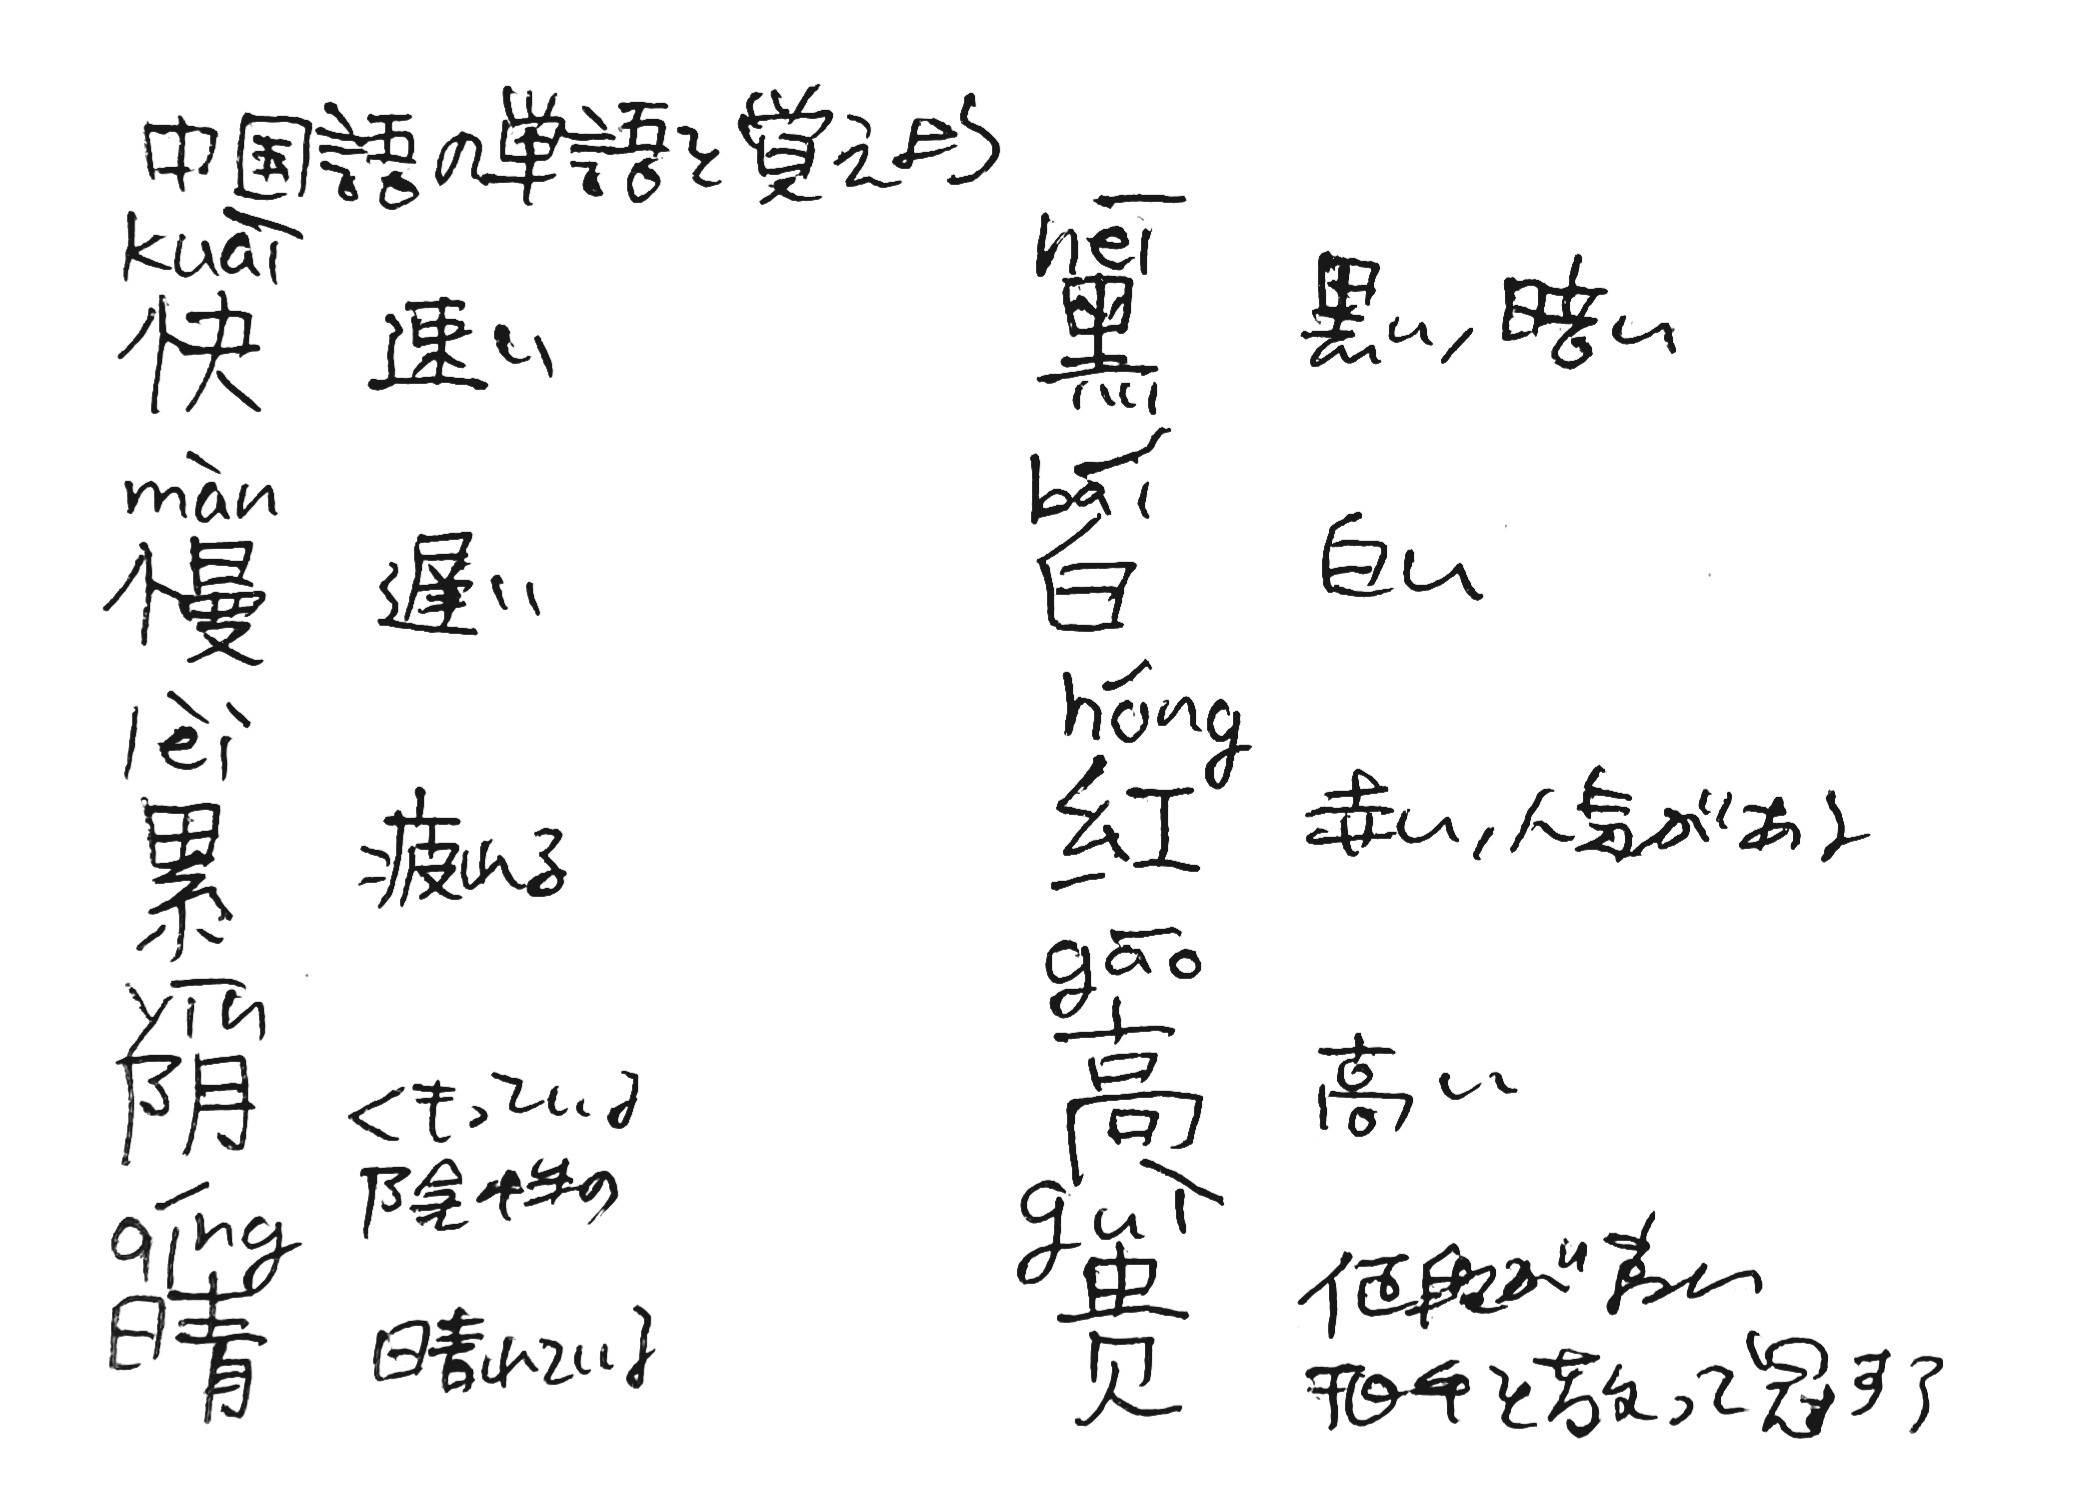 中国語の単語を覚えよう
kuài
快 速い
màn
慢 遅い
lèi
累 疲れる
yīn
阴 くもっている
陰性の
qíng
晴 晴れている
hēi
黑 黒い, 暗い
bái
白 白い
hóng
红 赤い, 人気がある
gāo
高 高い
guì
贵 値段が高い
相手を敬って冠する